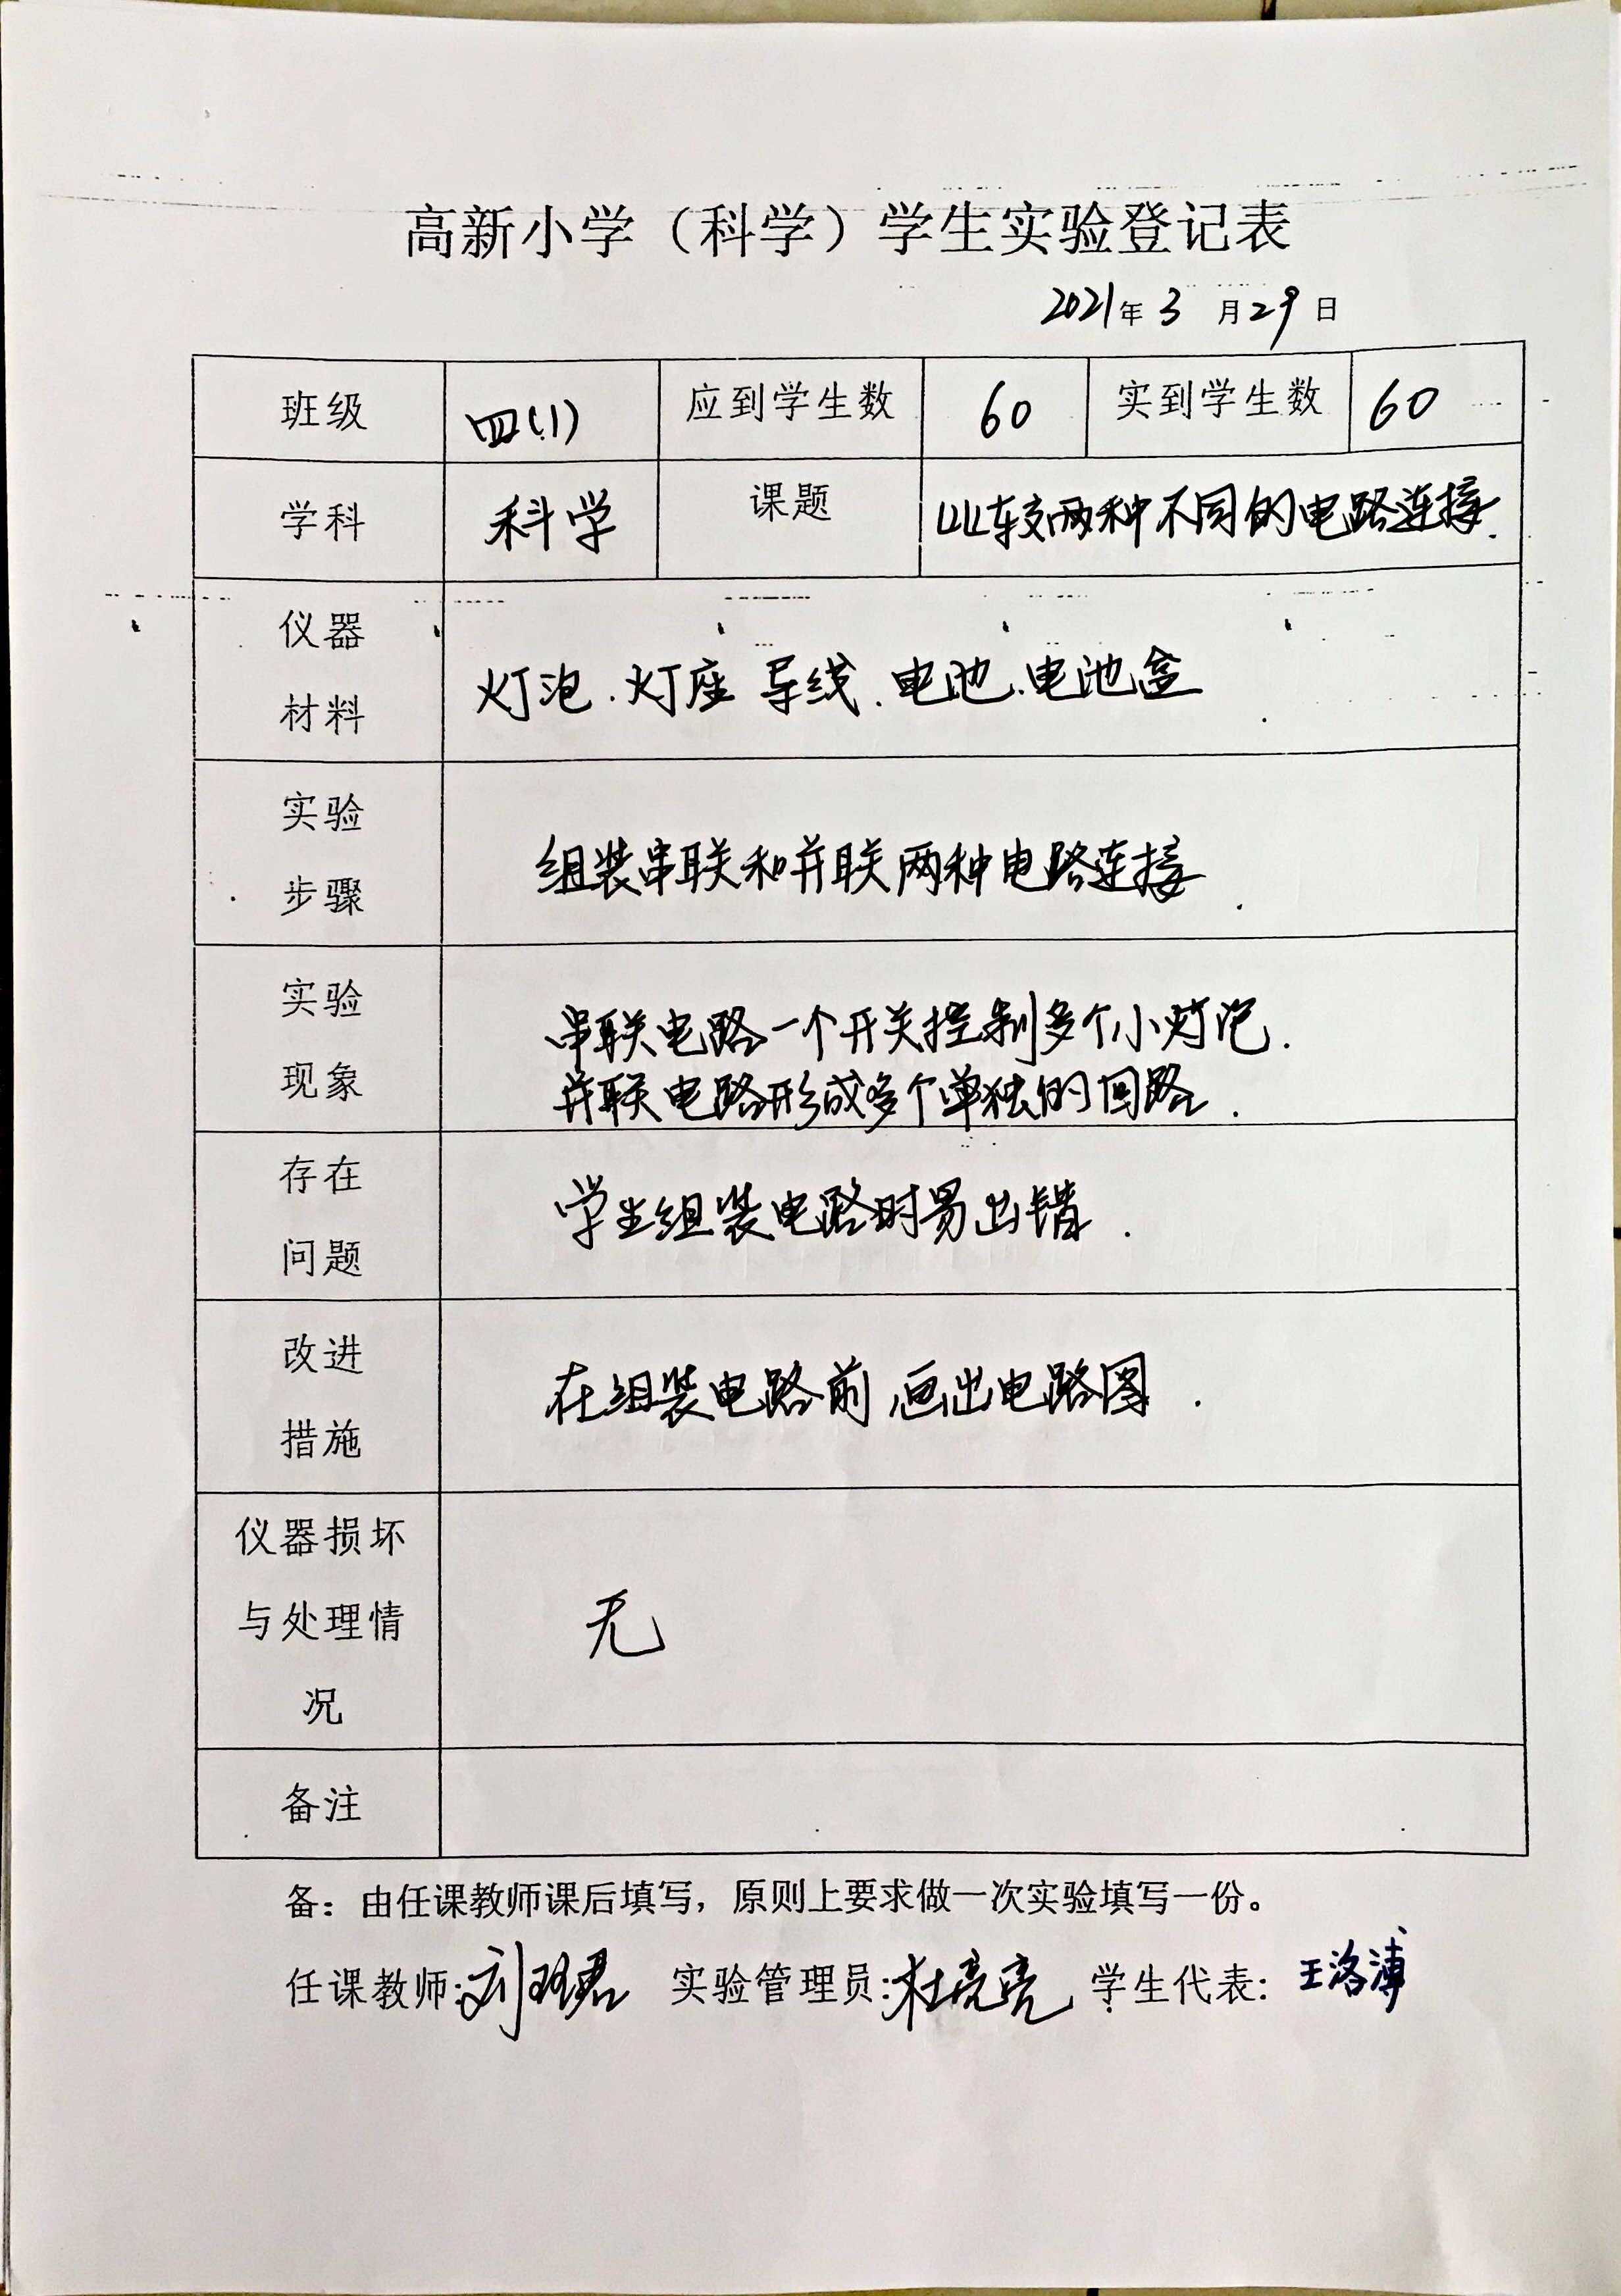 高新小学（科学）学生实验登记表
2021年3月29日
班级 四(1) 应到学生数 60 实到学生数 60
学科 科学 课题 比较两种不同的电路连接.
仪器
材料
灯泡.灯座 导线.电池.电池盒
实验
步骤
组装串联和并联两种电路连接.
实验
现象
串联电路一个开关控制多个小灯泡.
并联电路形成多个单独的回路.
存在
问题
学生组装电路时易出错.
改进
措施
在组装电路前画出电路图.
仪器损坏
与处理情
况
无
备注
备：由任课教师课后填写，原则上要求做一次实验填写一份。
任课教师:刘 实验管理员:杜亮亮 学生代表: 王洛溥